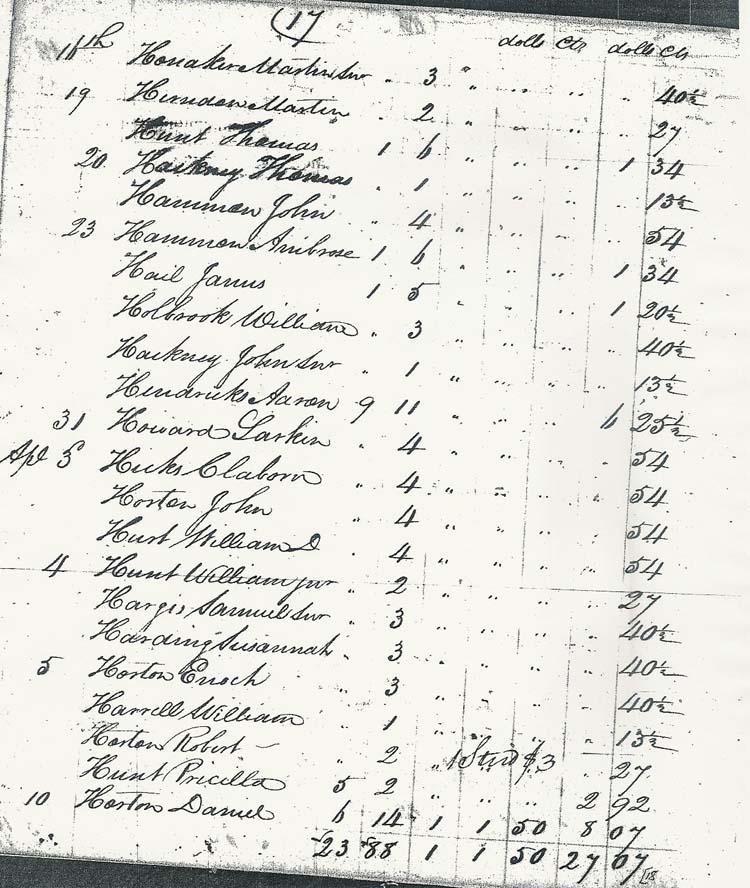 (17
dolls Cts dolls Cts
18th Honaker Martin Snr " 3 " " " " " 40½
19 Herndon Martin " 2 " " " " " 27
Hunt Thomas 1 6 " " " " 1 34
20 Hackney Thomas " 1 " " " " " 13½
Hammon John " 4 " " " " " 54
23 Hammon Ambrose 1 6 " " " " 1 34
Hail James 1 5 " " " " 1 20½
Holbrook William " 3 " " " " " 40½
Hackney John Snr " 1 " " " " " 13½
Hendricks Aaron 9 11 " " " " 6 25½
31 Howard Larkin " 4 " " " " " 54
Apl 3 Hicks Claborn " 4 " " " " " 54
Horton John " 4 " " " " " 54
Hust William D " 4 " " " " " 54
4 Hunt William jnr " 2 " " " " " 27
Hargis Samuel Snr " 3 " " " " " 40½
Harding Susannah " 3 " " " " " 40½
5 Horton Enoch " 3 " " " " " 40½
Harrell William " 1 " " " " " 13½
Horton Robert " 2 " 1 Stud $3 " 27
Hunt Pricilla 5 2 " " " 2 92
10 Horton Daniel 6 14 1 1 50 8 07
23 88 1 1 50 27 07
18